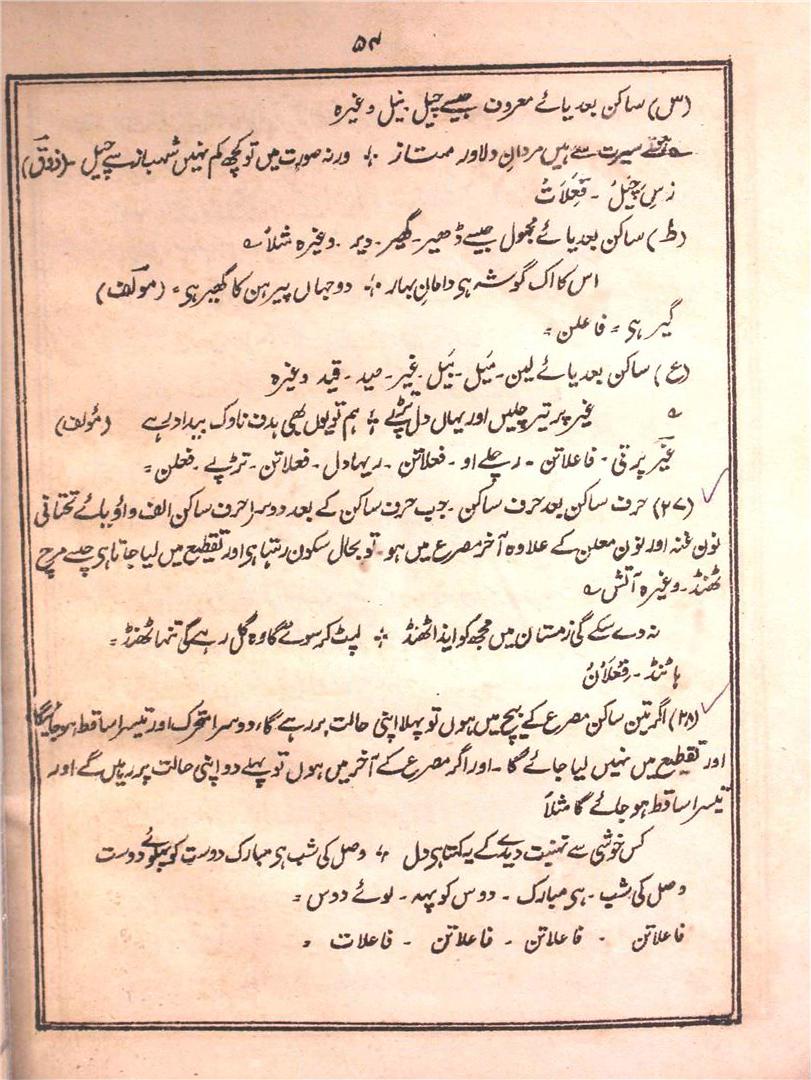 ۵۴
(س) ساکن بعد یائے معروف جیسے چیل۔ نیل وغیرہ
سیرت سے ہیں مردانِ دلاور ممتاز ؛ ورنہ صورت میں تو کچھ کم نہیں شہباز سے چیل ۔ (ذوق)
زسِ چیلُ ۔ فَعِلَاتُ
(ط) ساکن بعد یائے مجہول جیسے ڈھیر۔ گھیر۔ دیر۔ وغیرہ مثلاً ؎
اس کا اک گوشہ ہی دامانِ بہار ؛ دو جہاں پیرہن کا گھیر ہی = (مولف)
گیر ہی = فاعلن =
(ع) ساکن بعد یائے لین۔ میَل۔ بیَل۔ غیر۔ صید۔ قید وغیرہ
؎ غیر پر تیر چلیں اور یہاں دل تڑپے ؛ ہم تو یوں بھی ہدف ناوک بیداد رہے (مولف)
غیَر پر تی ۔ فاعلاتن = رچلے او ۔ فعلاتن ۔ ریہا دل ۔ فعلاتن ۔ تڑپے ۔ فعلن =
(۲۷) حرف ساکن بعد حرف ساکن ۔ جب حرف ساکن کے بعد دوسرا حرف ساکن الف واؤ یائے تحتانی
نون غنہ اور نون معلن کے علاوہ آخر مصرع میں ہو تو بحال سکون رہتا ہی اور تقطیع میں لیا جاتا ہی جیسے مرچ
ٹھنڈ۔ وغیرہ آتش ؎
نہ دے سکے گی زمستان میں مجھ کو ایذا ٹھنڈ ؛ لپٹ کر سوئے گا وہ گل رہے گی تنہا ٹھنڈ =
ہا ٹنڈ ۔ فَعْلَانُ
(۲۸) اگر تین ساکن مصرع کے بیچ میں ہوں تو پہلا اپنی حالت پر رہے گا، دوسرا متحرک اور تیسرا ساقط ہو جائیگا
اور تقطیع میں نہیں لیا جائے گا ۔ اور اگر مصرع کے آخر میں ہوں تو پہلے دو اپنی حالت پر رہیں گے اور
تیسرا ساقط ہو جائے گا مثلاً
کس خوشی سے تہنیت دیدے کے یہ کہتا ہی دل ؛ وصل کی شب ہی مبارک دوست کو پہلوئے دوست
وصل کی شب ۔ ہی مبارک ۔ دوس کو پہہ ۔ لوئے دوس =
فاعلاتن ۔ فاعلاتن ۔ فاعلاتن ۔ فاعلات =